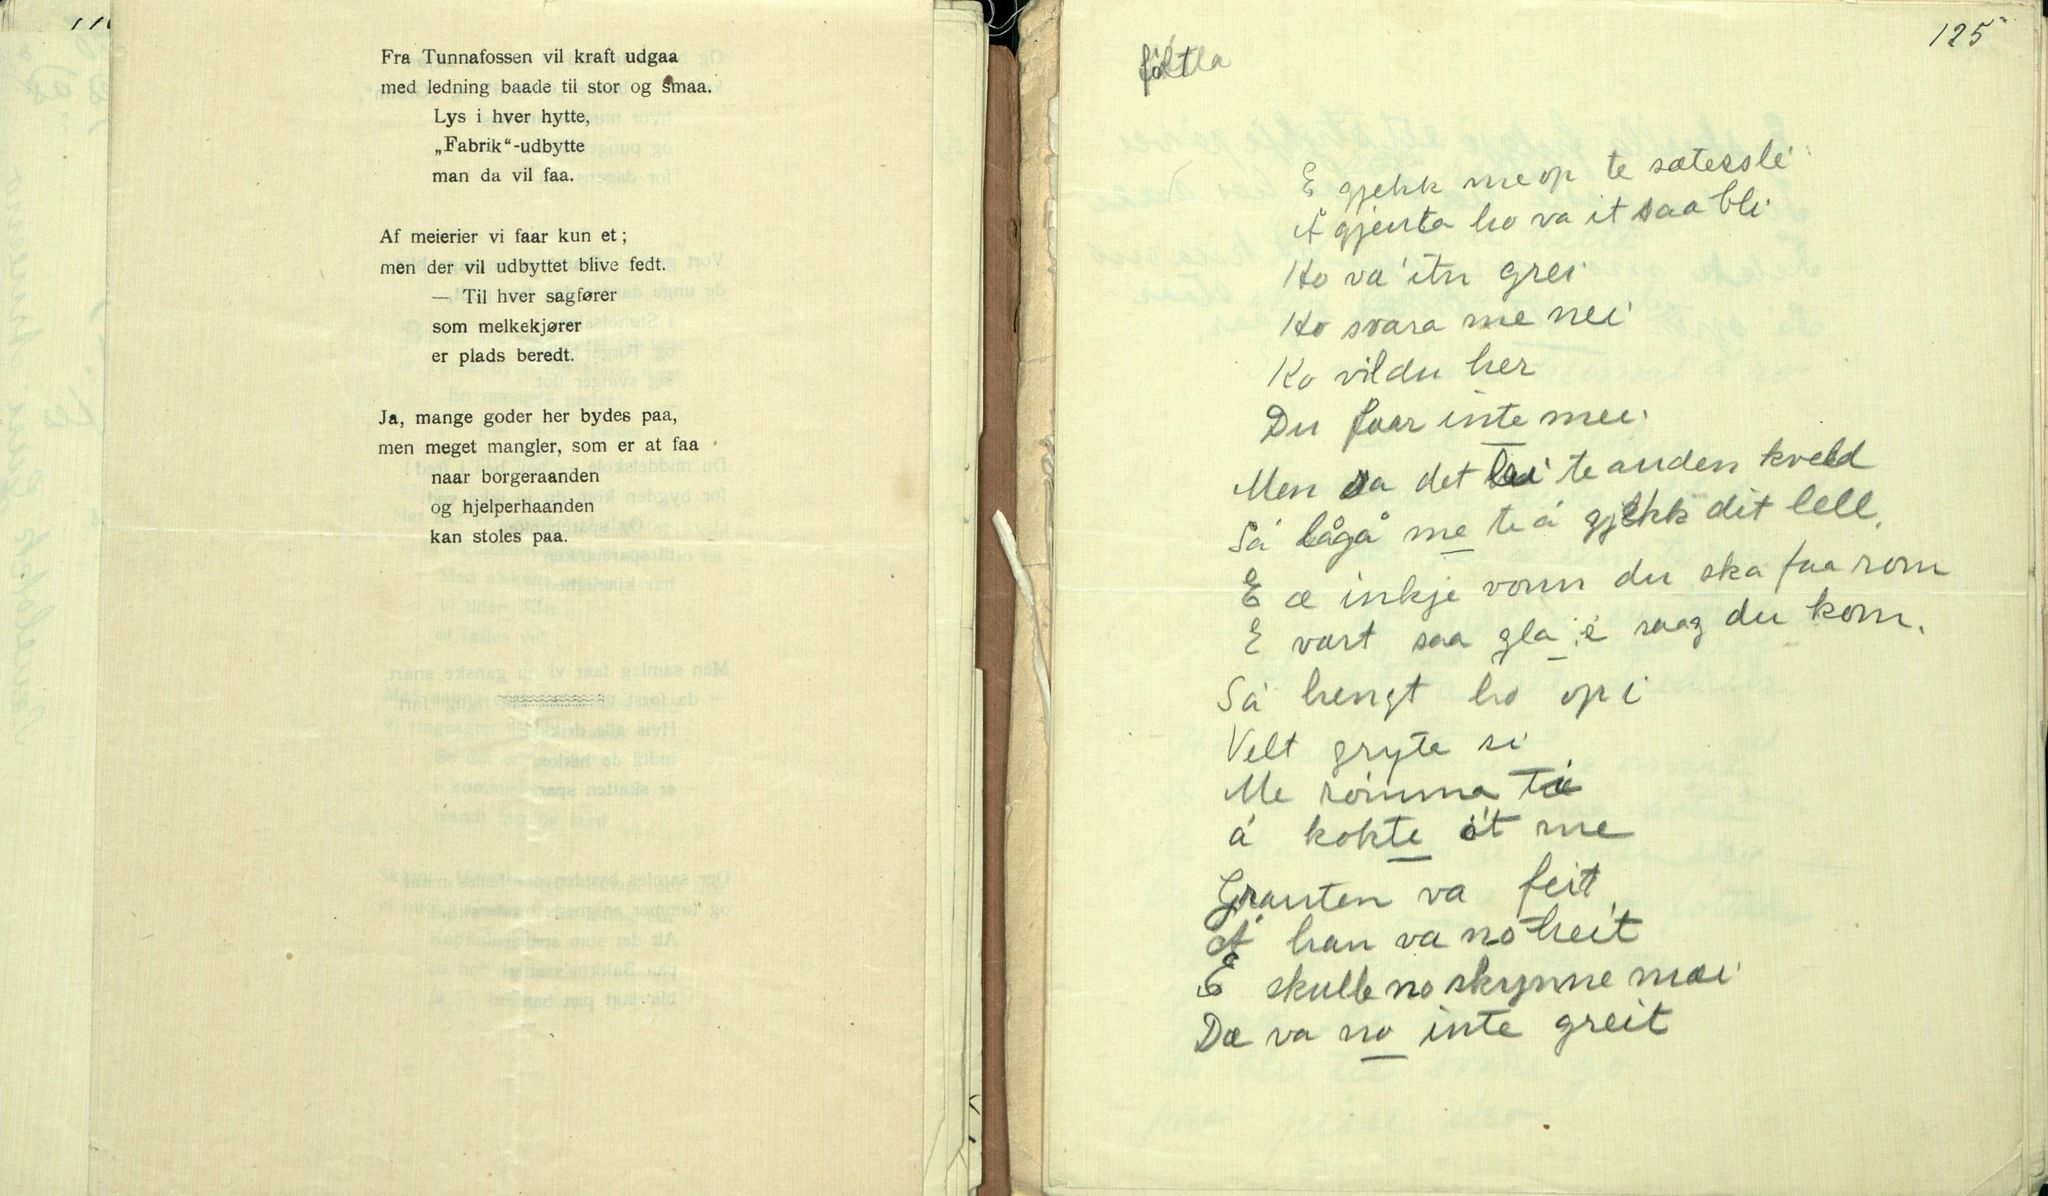 Fra Tunnafossen vil kraft udgaa
med ledning baade til stor og smaa.
Lys i hver hytte,
„Fabrik“-udbytte
man da vil faa.
Af meierier vi faar kun et;
men der vil udbyttet blive fedt.
— Til hver sagfører
som melkekjører
er plads beredt.
Ja, mange goder her bydes paa,
men meget mangler, som er at faa
naar borgeraanden
og hjelperhaanden
kan stoles paa.
125
E gjekk me op te sætessli
Å gjenta ho va it saa bli
Ho va itn grei
Ho svara me nei
Ko vil du her
Du faar inte mei.
Men sa det lei te anden kveld
Så lågå me te å gjekk dit lell.
E æ inkje vonn du ska faa rom
E vart saa gla é saag du kom.
Så hengt ho op i
Velt gryte si
Me römma ti
å kokte åt me
Grauten va feit
Å han va no heit
E skulle no skynne mæi
Dæ va no inte greit